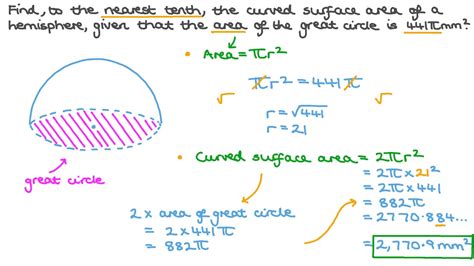 Find, to the nearest tenth, the curved surface area of a
hemisphere, given that the area of the great circle is 441π mm².
• Area = πr²
πr² = 441π
√ √
r = √441
r = 21
great circle
• Curved surface area = 2πr²
= 2π × 21²
= 2π × 441
= 882π
= 2770.884...
= 2,770.9mm²
2 × area of great circle
= 2 × 441π
= 882π